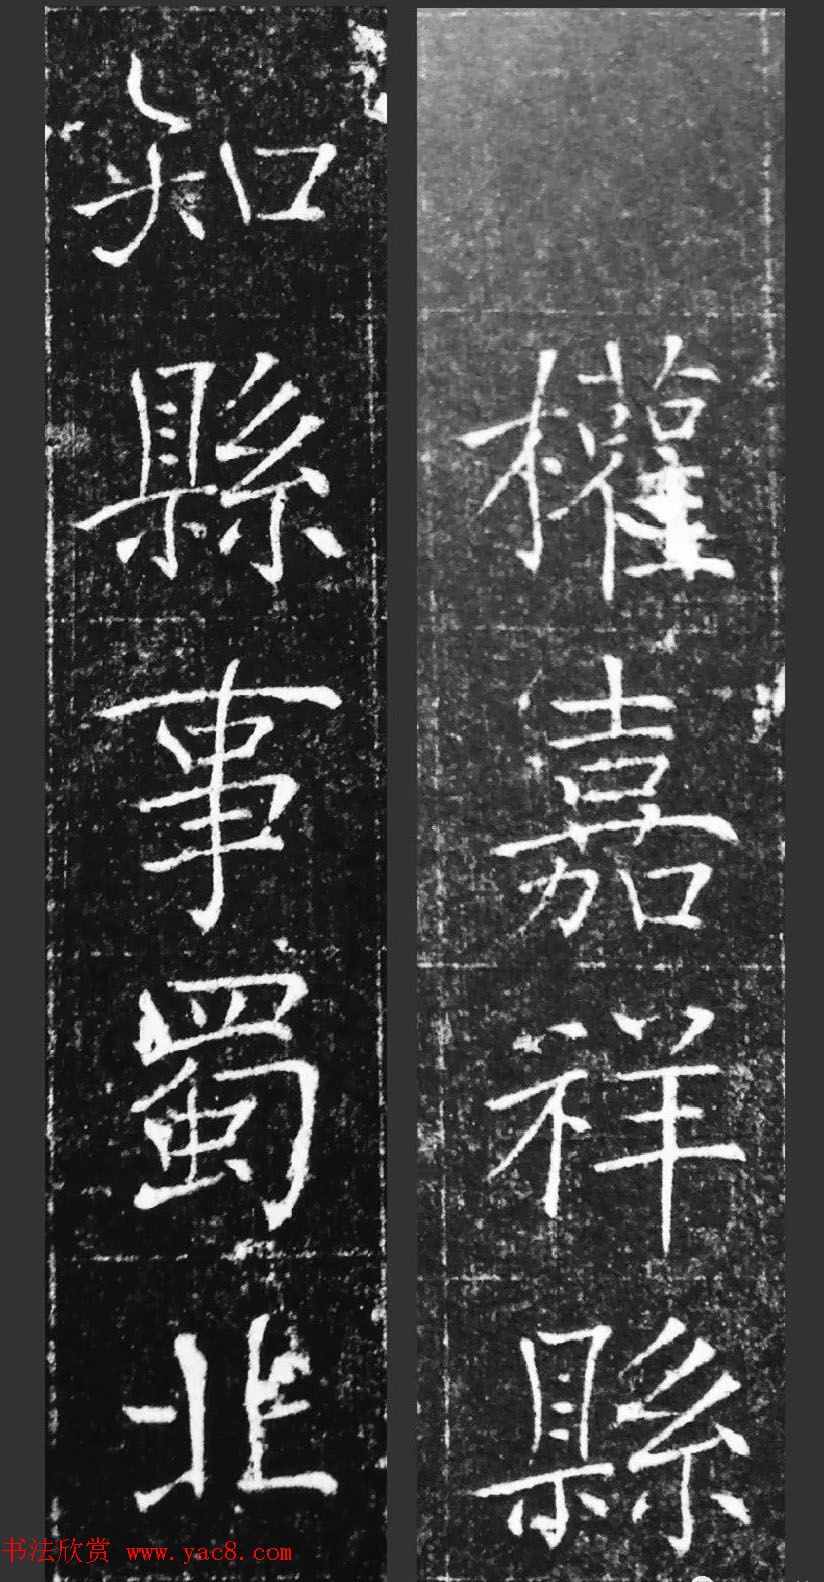 權嘉祥縣
知縣事蜀北
书法欣赏 www.yac8.com